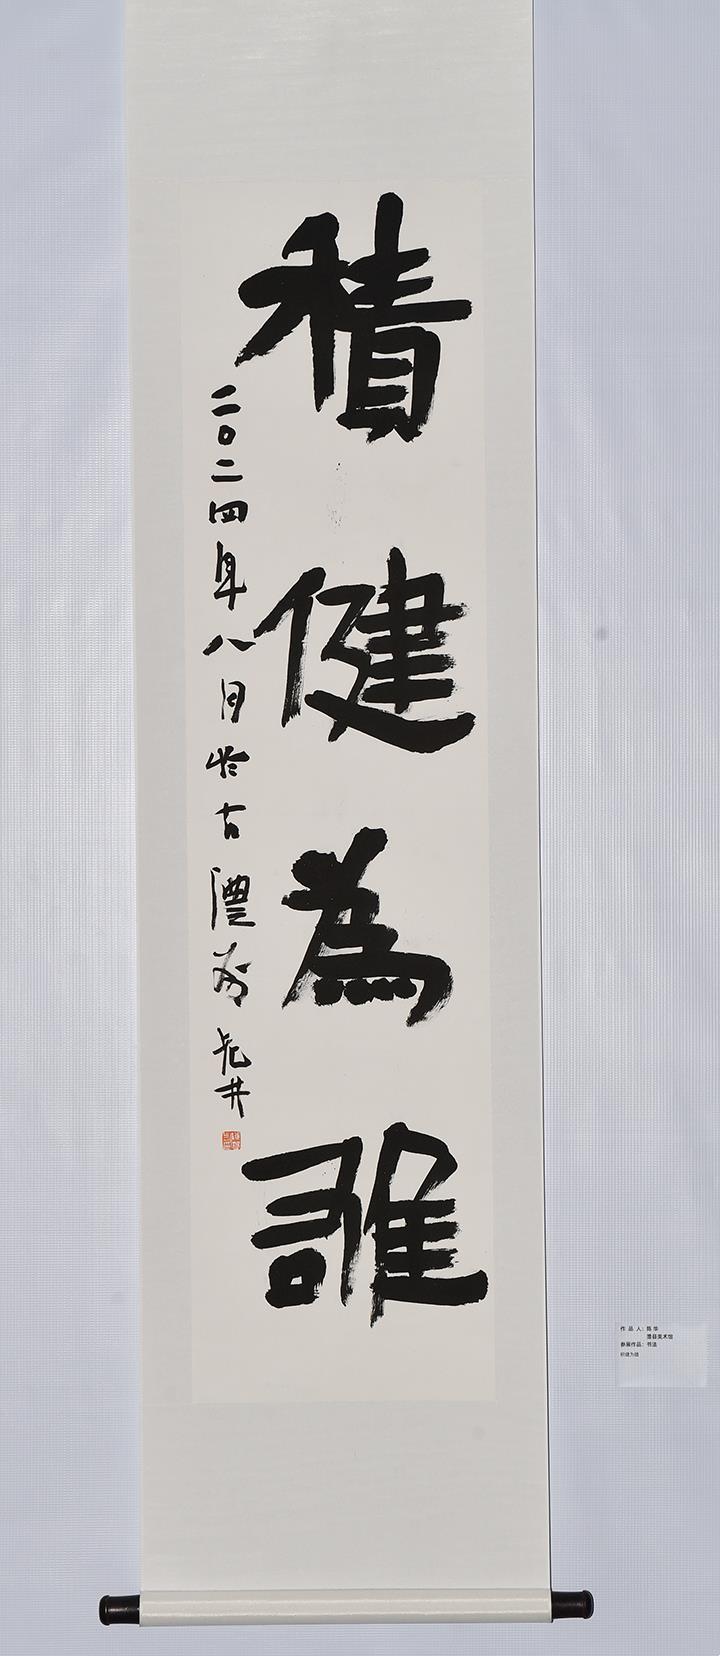 積健為雄
二〇二四年八月於古澧
作品人：陈华
澧县美术馆
参展作品：书法
积健为雄